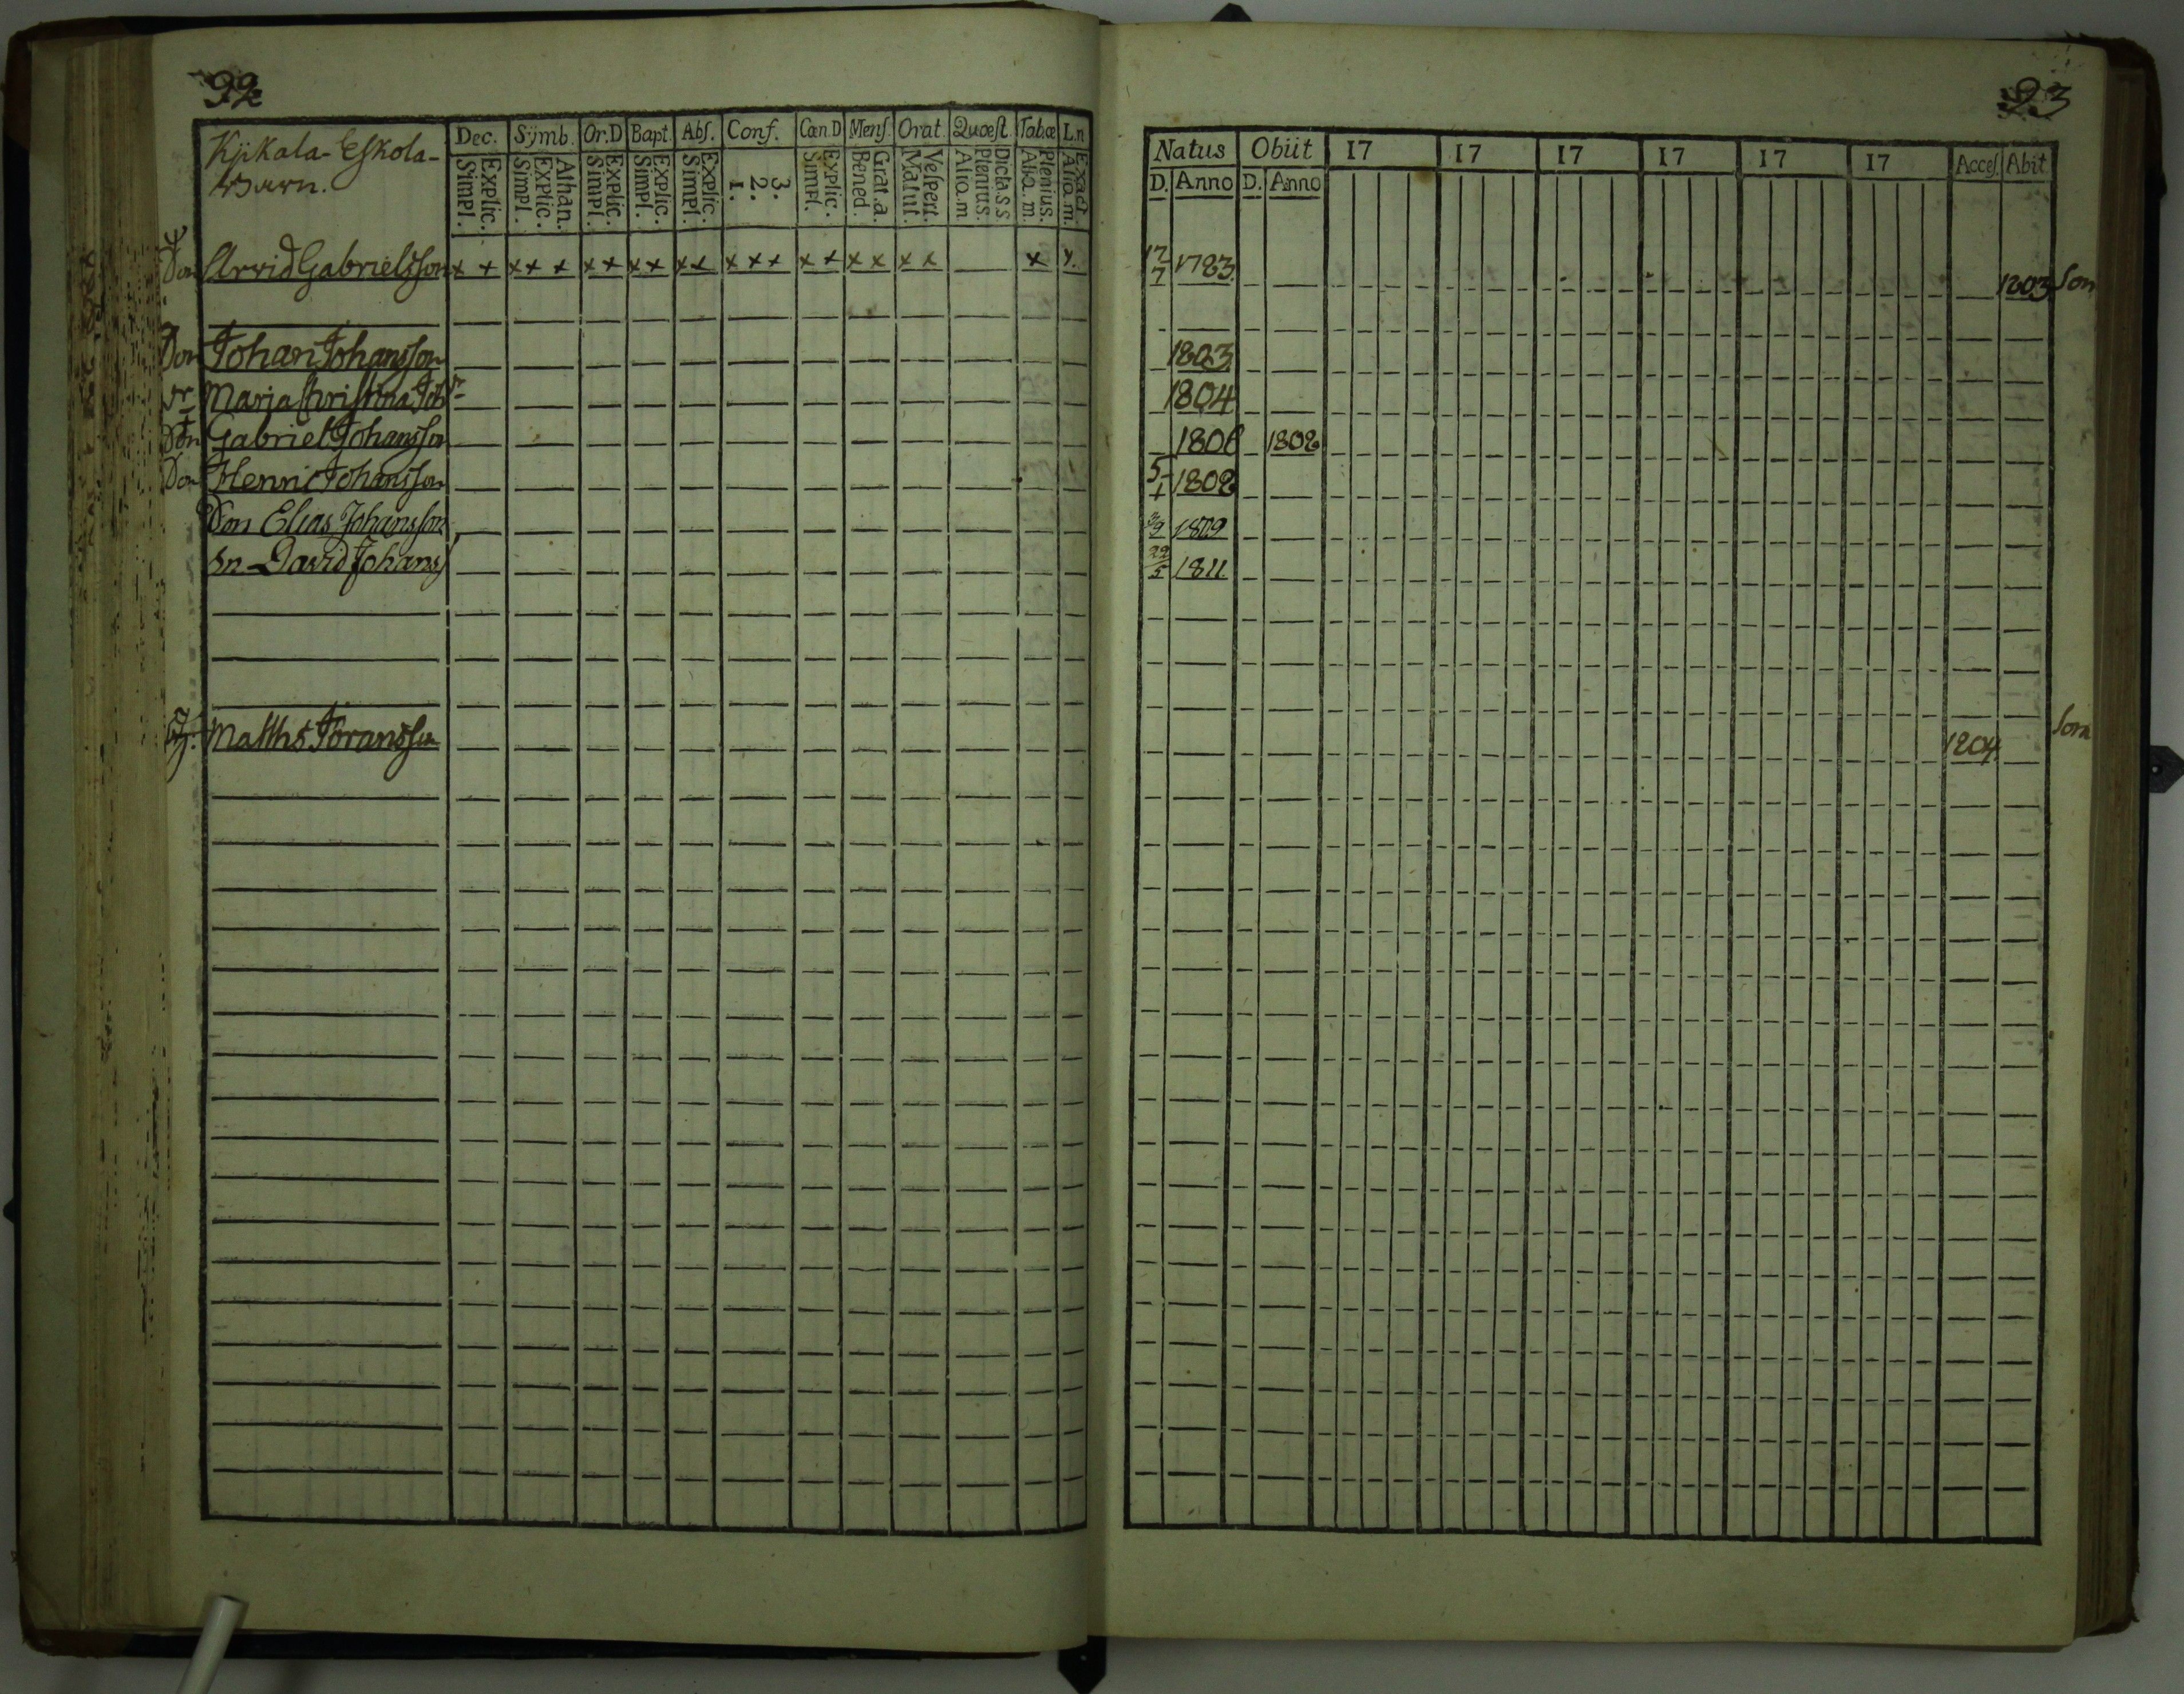 92
Kÿkala-Eskola-
Barn.
Dec. Sÿmb. Or.D Bapt. Abſ. Conf. Cœn.D Menſ. Orat. Quœſt. Tabœ L.n
Simpl. Explic. Simpl. Explic. Athan. Simpl. Explic. Simpl. Explic. Simpl. Explic. 1. 2. 3. Simpl. Explic. Bened. Grat.a. Matut. Veſpert. Alio.m Plenius. Dicta.s.s Alio.m. Plenius. Alio.m. Exact
Son Arvid Gabrielsson x x x x x x x x x x x x x x x x x x x x x x.
Son Johan Johansson
Maria Christina Joh
Son Gabriel Johansson
Son Henric Johansson
Son Elias Johansson
Sn David Johans
Matths Göransson
23
Natus Obiit 17 17 17 17 17 17 Acceſ. Abit
D. Anno D. Anno
17/7 1783 1803 Son
1803
1804
1806 1808
5/1 1808
3/9 1809
22/5 1811
1804